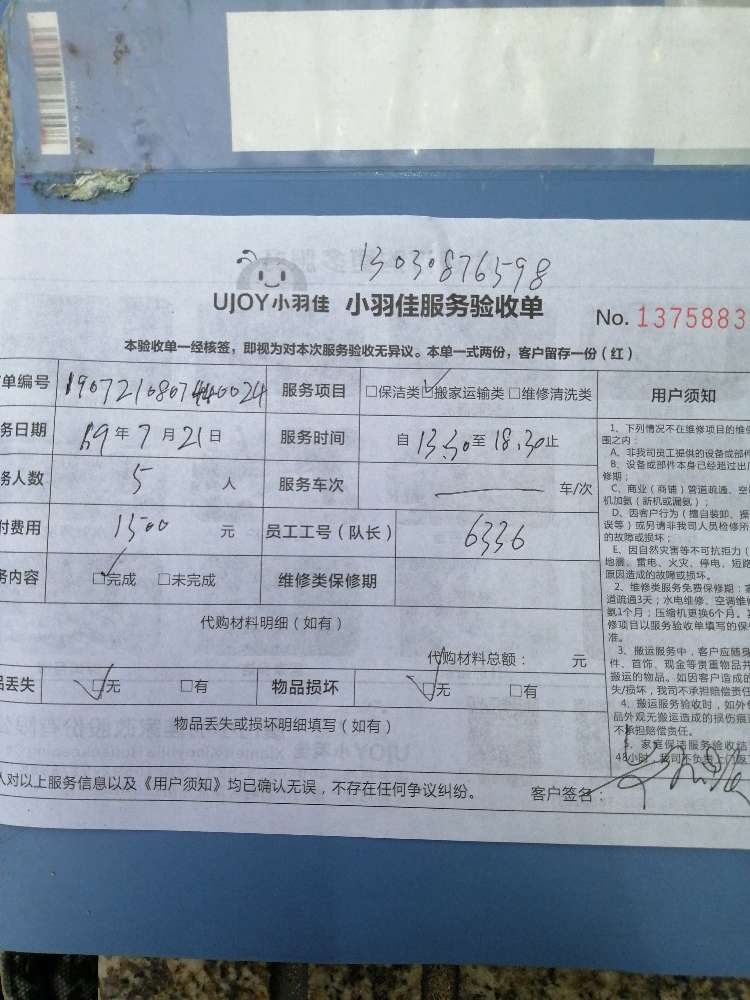 13030876598
UJOY小羽佳 小羽佳服务验收单 No. 1375883
本验收单一经核签，即视为对本次服务验收无异议。本单一式两份，客户留存一份（红）
单编号 服务项目 □保洁类 ☑搬家运输类 □维修清洗类 用户须知
务日期 19年7月21日 服务时间 自13:30至18:30止
务人数 5 人 服务车次 车/次
付费用 1500 元 员工工号（队长） 6336
务内容 ☑完成 □未完成 维修类保修期
代购材料明细（如有）
代购材料总额： 元
品丢失 ☑无 □有 物品损坏 ☑无 □有
物品丢失或损坏明细填写（如有）
人对以上服务信息以及《用户须知》均已确认无误，不存在任何争议纠纷。 客户签名：
1、下列情况不在维修项目的维
围之内：
A、非我司员工提供的设备或部件
B、设备或部件本身已经超过出
修期；
C、商业（商铺）管道疏通、空
机加氨（新机或漏氨）；
D、因客户行为（擅自装卸、操
误等）或另请非我司人员检修所
的故障或损坏；
E、因自然灾害等不可抗拒力（
地震、雷电、火灾、停电、短路
原因造成的故障或损坏。
2、维修类服务免费保修期：
道疏通3天；水电维修、空调维
氨1个月；压缩机更换6个月。
修项目以服务验收单填写的保
准。
3、搬运服务中，客户应随身
件、首饰、现金等贵重物品
搬运的物品。如因客户造成的
失/损坏，我司不承担赔偿责
4、搬运服务验收时，如外
品外观无搬运造成的损伤痕
不承担赔偿责任。
5、家庭保洁服务验收结
48小时，我司不负责